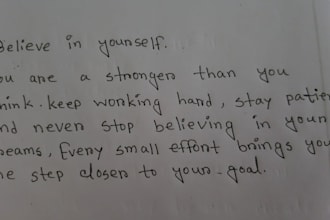 Believe in yourself.
ou are a stronger than you
hink. keep working hard, stay patie
nd never stop believing in your
reams, Every small effort brings you
ne step closer to your goal.